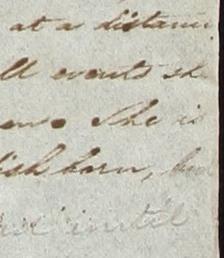 at a distanc
ll events sh
ens. She is
lish born, bu
until